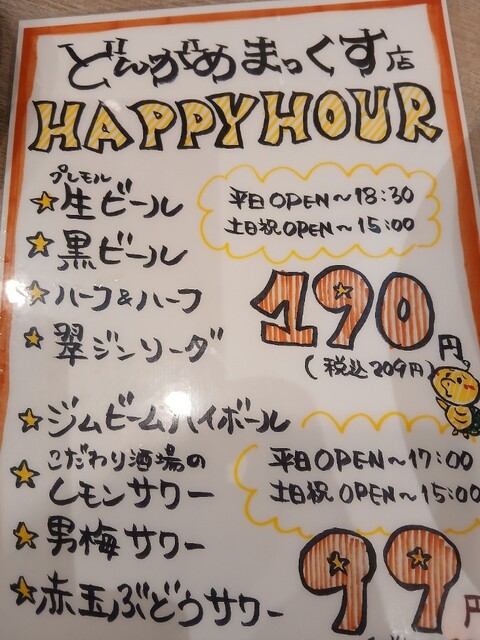 どんがめまっくす店
HAPPYHOUR
プレモル
生ビール
黒ビール
ハーフ&ハーフ
翠ジンソーダ
平日OPEN～18:30
土日祝OPEN～15:00
190円
(税込209円)
ジムビームハイボール
こだわり酒場の
レモンサワー
男梅サワー
赤玉ぶどうサワー
平日OPEN～17:00
土日祝OPEN～15:00
99円